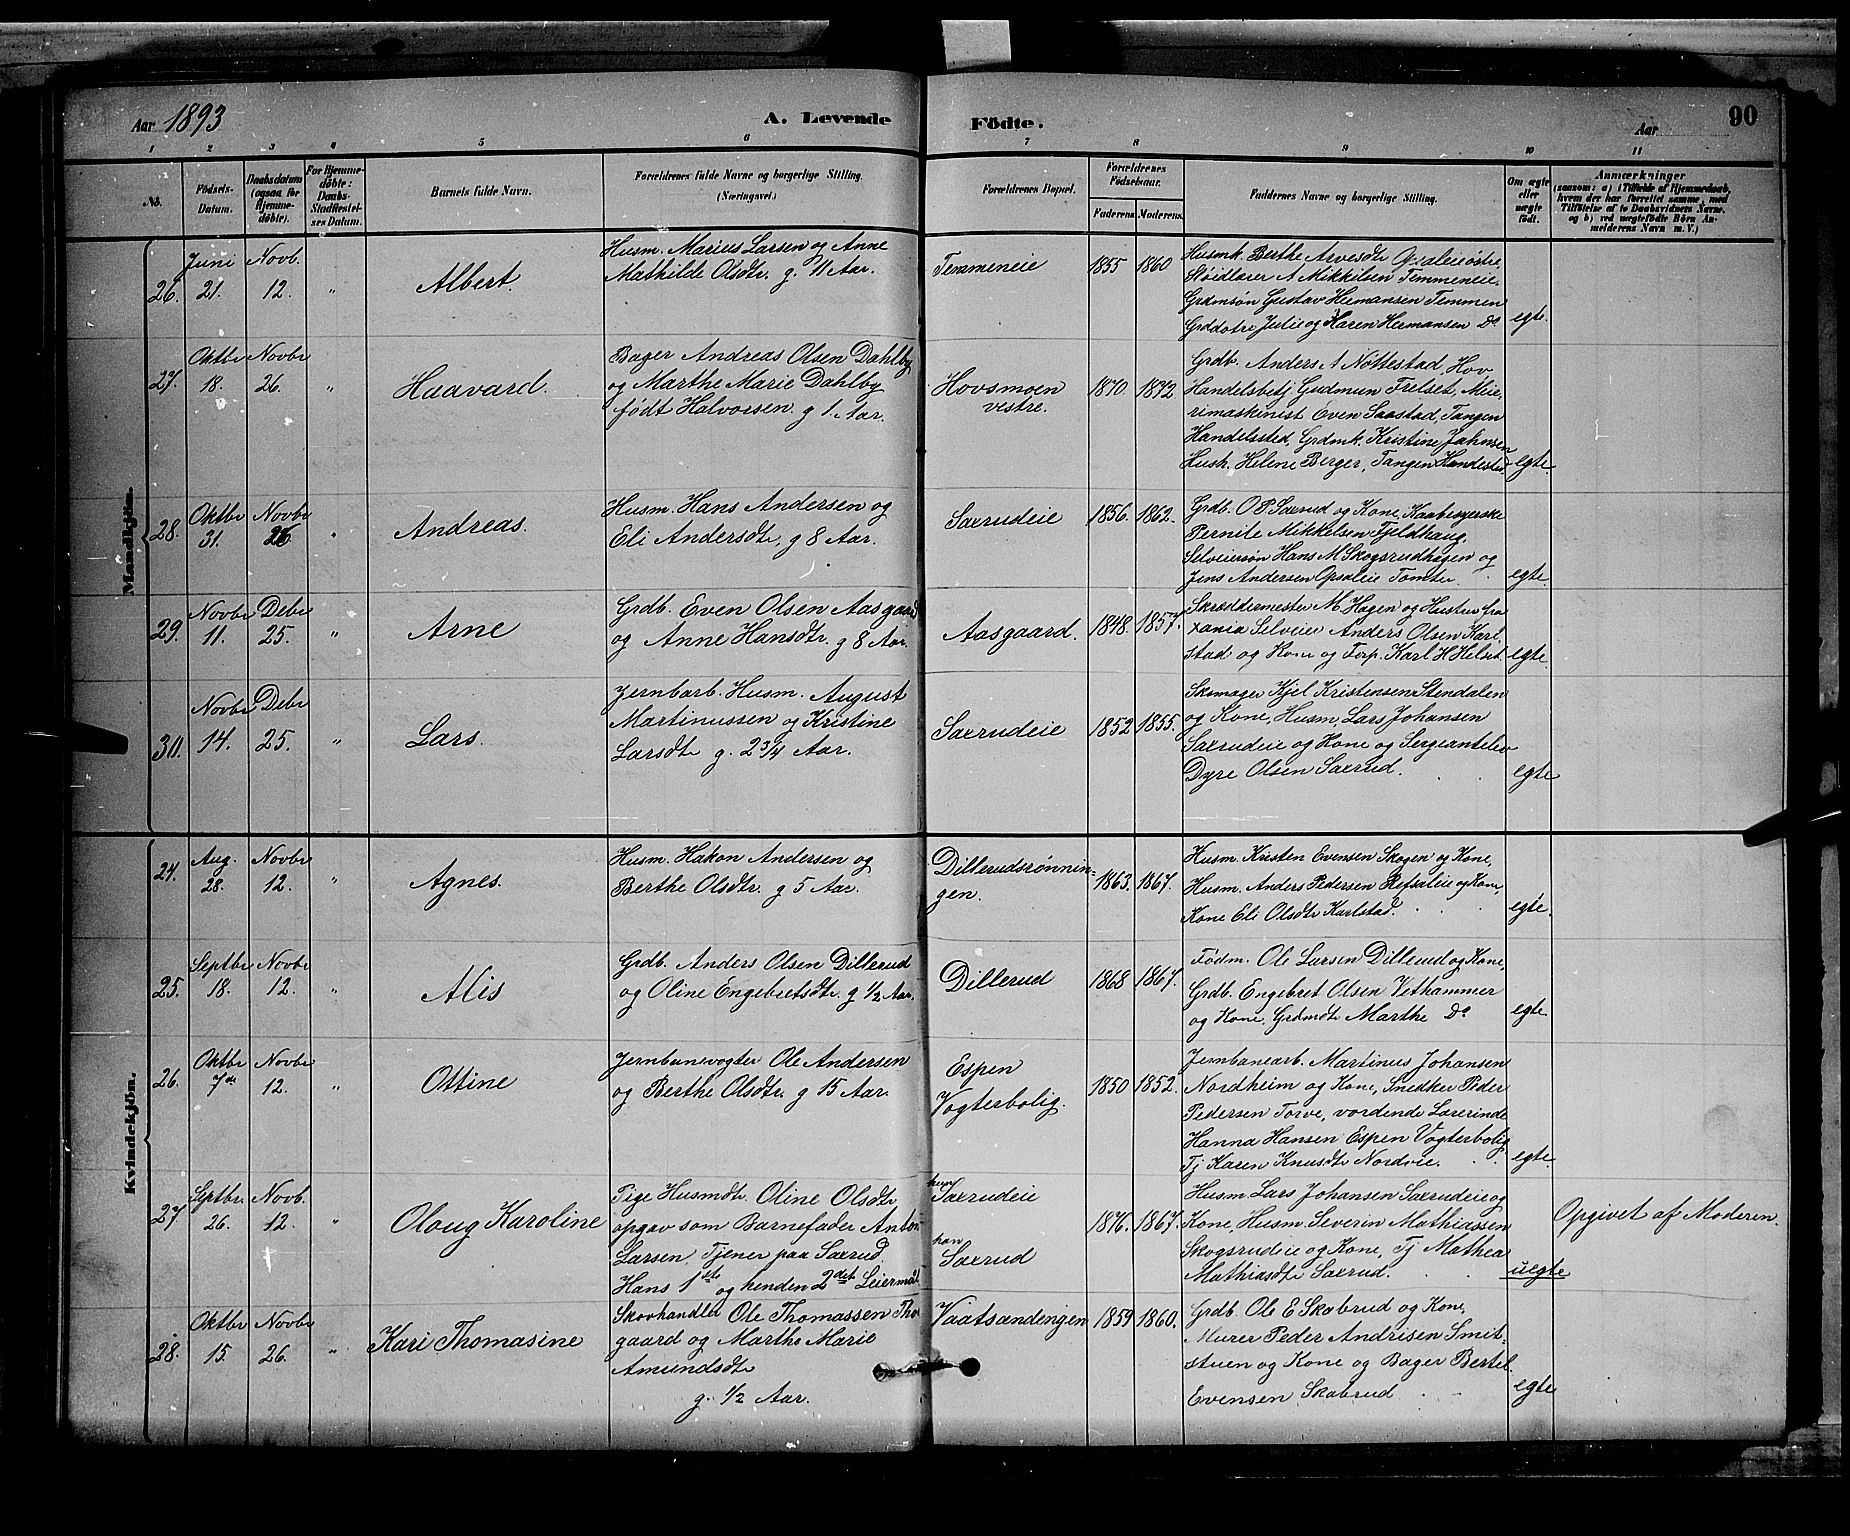 Aar 1893
A. Levende Födte.
Aar
90
1 2 3 4 5 6 7 8 9 10 11
No.
Födsels-Datum.
Daabsdatum (ogsaa for Hjemmedöbte).
For Hjemmedöbte: Daabs-Stadfæstelses Datum.
Barnets fulde Navn.
Forældrenes fulde Navne og borgerlige Stilling. (Næringsvei.)
Forældrenes Bopæl.
Forældrenes Födselsaar.
Faderens. Moderens.
Faddernes Navne og borgerlige Stilling.
Om ægte eller uægte födt.
Anmærkninger
(saasom: a) i Tilfælde af Hjemmedaab, hvem der har forrettet samme, med Tilföielse af to Daabsvidners Navne, og b) ved uægtefödte Börn Anmelderens Navn m. V.)
Mandkjön.
26. Juni 21. Novb. 12. " Albert.
Husm. Marius Larsen og Anne
Mathilde Olsdtr. g. 11 Aar.
Temmeneie 1855 1860
Husmk. Berthe Arvesdtr
A Mikkilsen Temmeneie,
Grdmsøn Gustav Hermansen Temmen
Grddotre Julie og Karen Hermansen Do
egte.
27. Oktbr 18. Novbr 26. " Haavard.
Bager Andreas Olsen Dahlby
og Marthe Marie Dahlby
født Halvorsen. g 1 Aar.
Hovsmoen vestre. 1870. 1872
Grdb. Anders A Nøttestad Hov
Handelsbetj Gudmun Frelset, Meie-
rimaskinist Even Saastad, Tangen
Handelssted, Grdmk. Kristine Johnsen
Hush. Helene Berger, Tangen Handelsted
egte.
28. Oktbr 31. Novbr 26 " Andreas.
Husm. Hans Andersen og
Eli Andersdtr, g 8 Aar.
Saxrudeie 1856. 1862.
Grdb. O P. Saxrud og Kone,
Pernile Mikkelsen Fjeldhaug,
Selveiersøn Hans M Skogsrudhagen og
Jens Andersen Opsaleie Tomter.
egte.
29. Novbr 11. Debr 25. " Arne
Grdb. Even Olsen Aasgaard
og Anne Hansdtr. g 8 Aar.
Aasgaard. 1848. 1857.
Skræddermester M. Hagen og Hustru fra
Xania Selveier Anders Olsen Karl-
stad og Kone og Forp. Karl H Helset
egte
30. Novbr 14. Debr 25. " Lars.
Jernbarb. Husm. August
Martinussen og Kristine
Larsdtr g. 2 3/4 Aar.
Saxrudeie 1852 1855.
Skomager Kjel Kristensen Stendalen
og Kone, Husm. Lars Johansen
Saxrudeie og Kone og Sergeantelev
Dyre Olsen Saxrud.
egte
Kvindekjön.
24. Aug. 28. Novbr 12. " Agnes.
Husm. Hakon Andersen og
Berthe Olsdtr. g 5 Aar.
Dillerudsrønnin-
gen. 1863. 1867.
Husm. Kristen Evensen Skogen og Kone,
Husm. Anders Pedersen Refsaleie og Kone,
Kone Eli Olsdtr Karlstad.
egte.
25. Septbr 18. Novbr 12. " Alis
Grdb. Anders Olsen Dillerud
og Oline Engebretsdtr. g 1/2 Aar.
Dillerud 1868 1867.
Fødm. Ole Larsen Dillerud og Kone,
Grdb. Engebret Olsen Vethammer
og Kone, Grdmdtr Marthe Do
egte
26. Oktbr 7de Novbr 12. " Ottine
Jernbanevogter Ole Andersen
og Berthe Olsdtr. g 15 Aar.
Espen
Vogterbolig. 1850 1852.
Jernbanearb. Martinus Johansen
Nordheim og Kone, Snedker Peder
Pedersen Torve, vordende Lærerinde
Hanna Hansen Espen Vogterbolig
Tj Karen Knusdtr Nordvie.
egte.
27 Septbr. 26. Novb. 12. " Oloug Karoline
Pige Husmdtr. Oline Olsdtr
opgav som Barnefader Anton
Larsen, Tjener paa Saxrud.
Hans 1ste og hendes 2det Leiermål
hun Saxrudeie
han Saxrud
1876. 1867.
Husm Lars Johansen Saxrudeie og
Kone, Husm. Severin Mathiassen
Skogsrudeie og Kone, Tj Mathea
Mathiasdtr Saxrud.
uegte
Opgivet af Moderen.
28. Oktbr 15. Novbr 26. " Kari Thomasine
Skovhandler Ole Thomassen Tho
gaard og Marthe Marie
Amundsdtr
g. 1/2 Aar.
Vaatsandengen 1859 1860.
Grdb. Ole E Skabrud og Kone,
Murer Peder Andrisen Smit-
stuen og Kone og Bager Bertel
Evensen Skabrud
egte